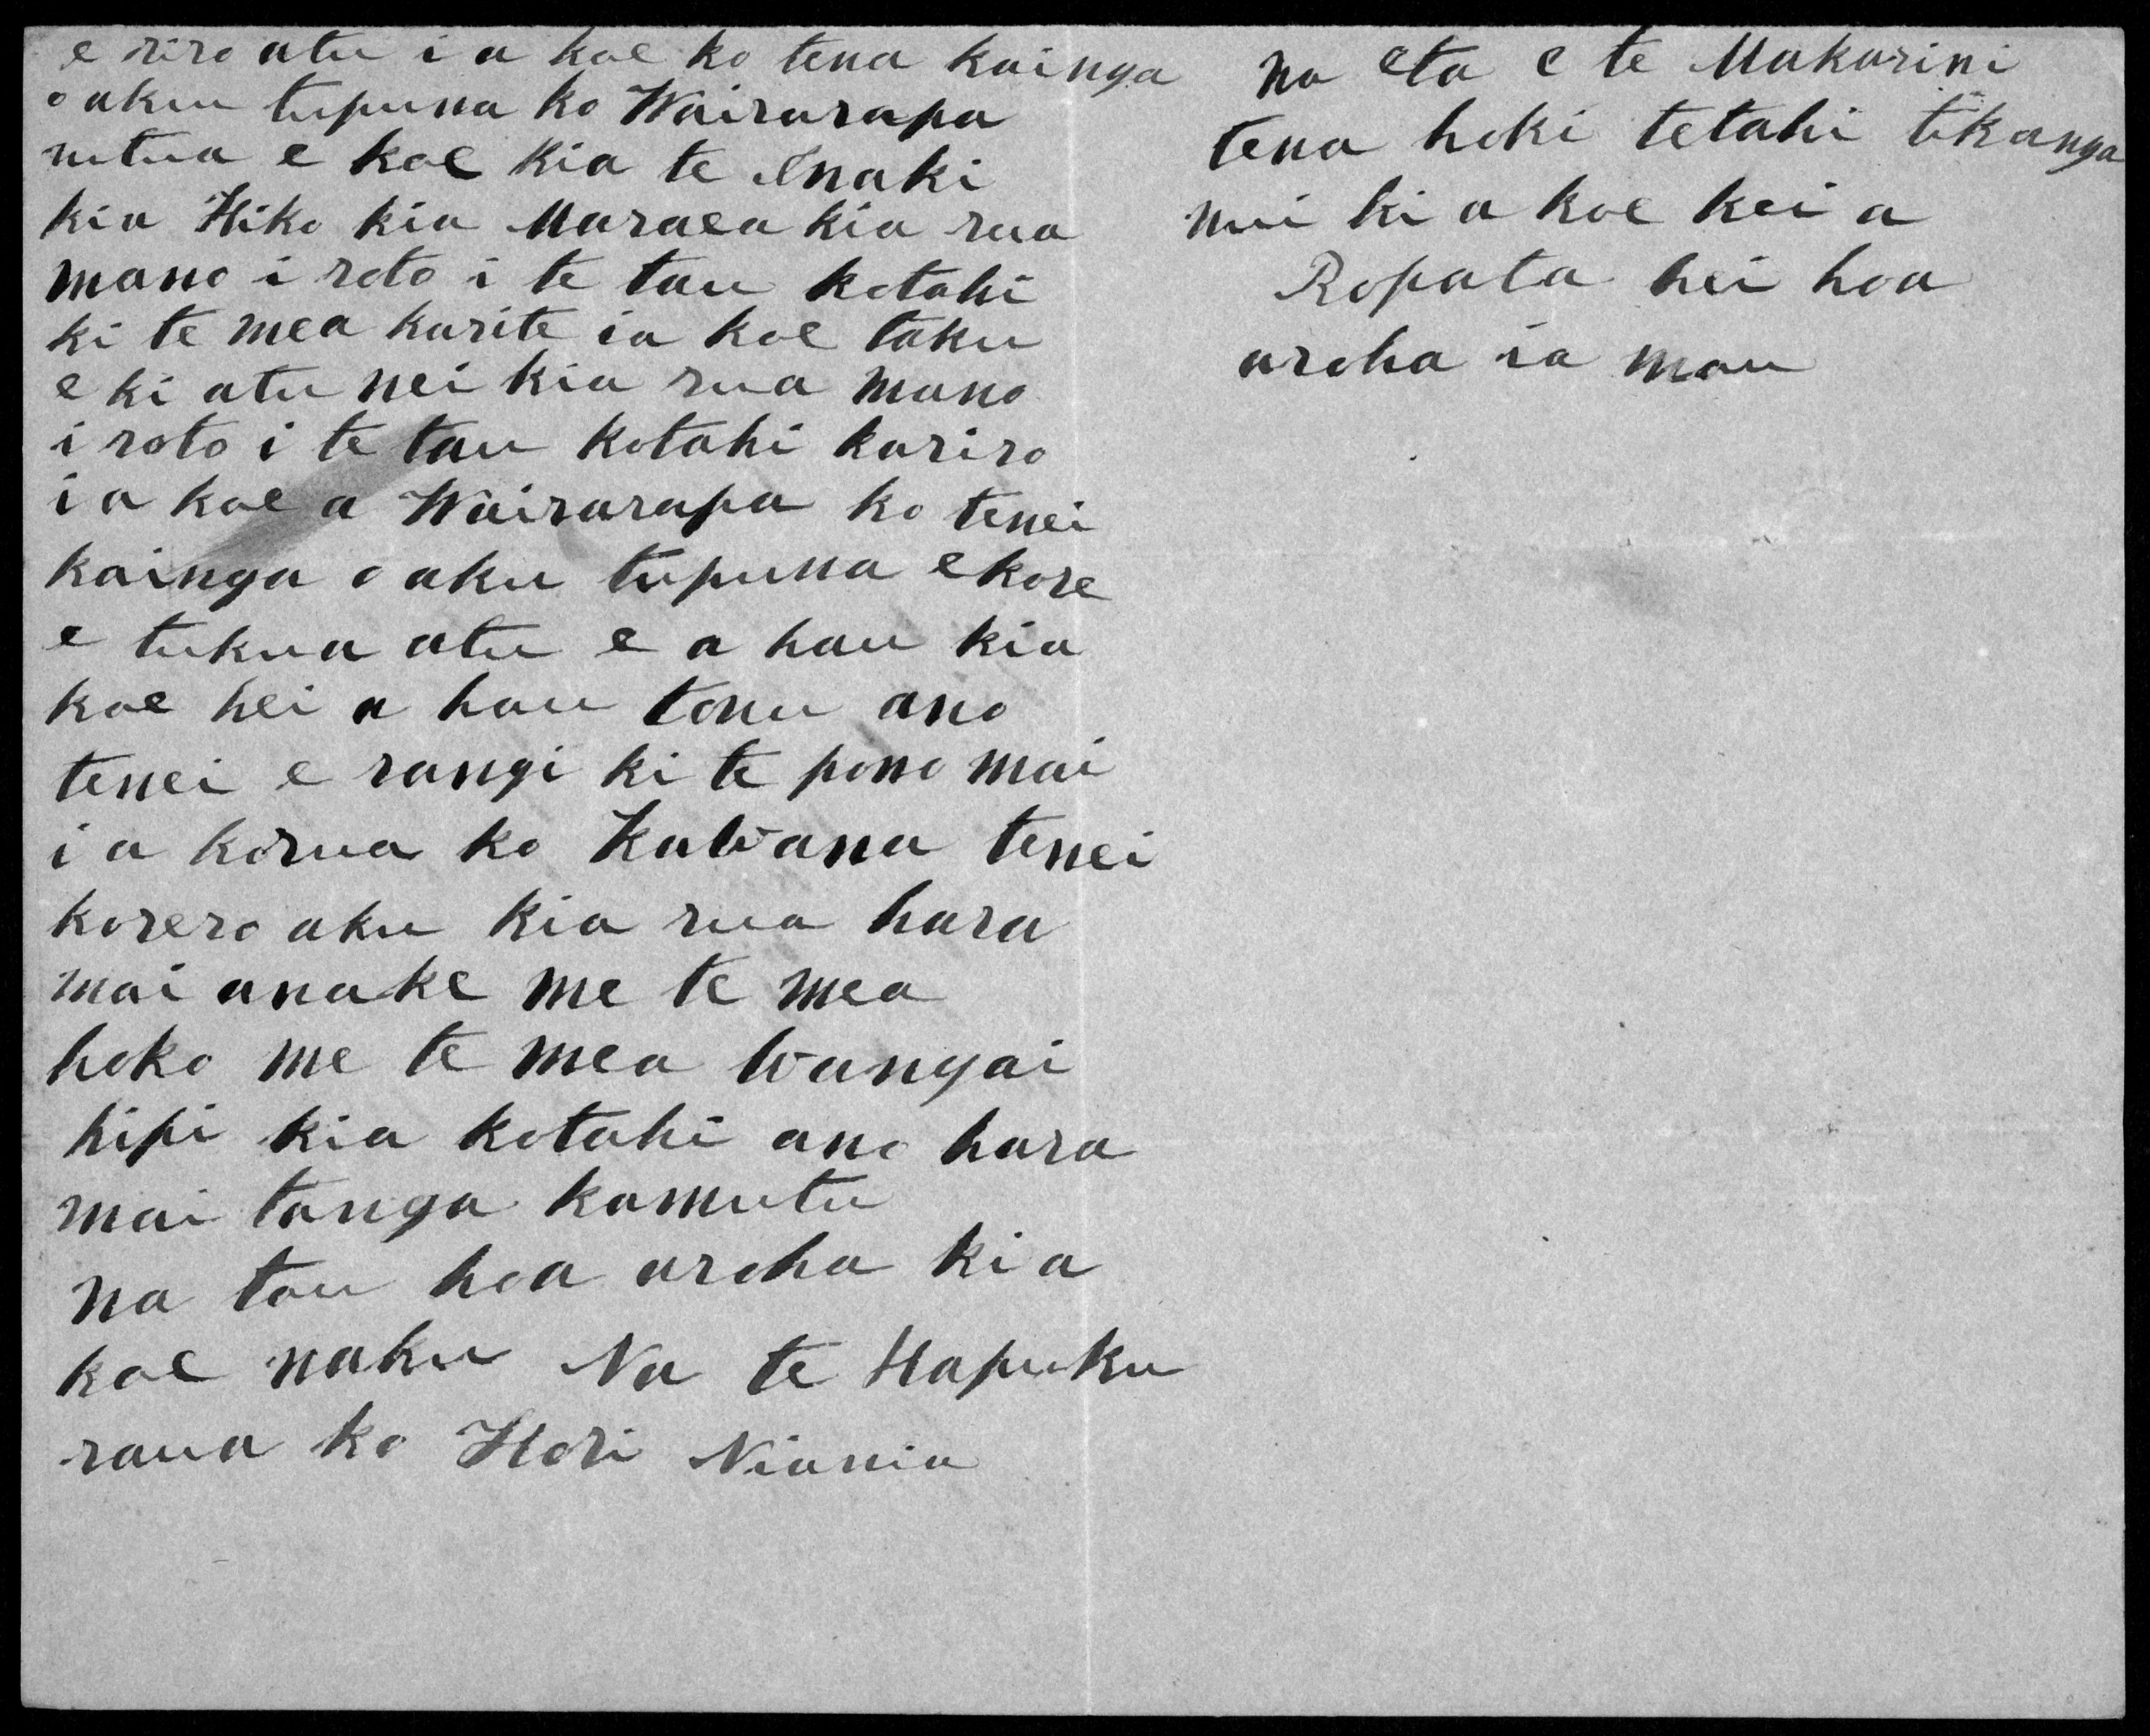 e riro atu i a koe ko tena kainga
o aku tupuna ko Wairarapa
utua e koe kia te Inaki
kia Hiko kia Maraea kia rua
mano i roto i te tau kotahi
ki te mea karite ia koe taku
e ki atu nei kia rua mano
i roto i te tau kotahi kariro
i a koe a Wairarapa ko tenei
kainga o aku tupuna ekore
e tukua atu e a hau kia
koe hei a hau tonu ano
tenei e rangi ki te pono mai
i a korua ko Kawana tenei
korero aku kia rua hara
mai anake me te mea
hoko me te mea wangai
hipi kia kotahi ano hara
mai tanga kamutu
na tou hoa aroha kia
koe naku Na te Hapuku
raua ko Hori Niania
na eta e te Makarini
tena hoki tetahi tikanga
nui ki a koe kei a
Ropata hei hoa
aroha ia mou